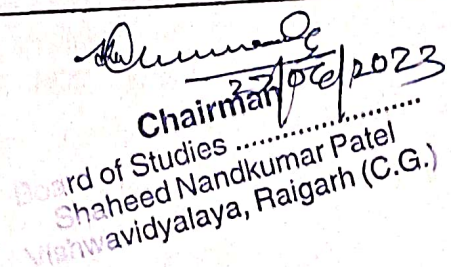 2023
Chairman
Board of Studies ........................
Shaheed Nandkumar Patel
Vishwavidyalaya, Raigarh (C.G.)